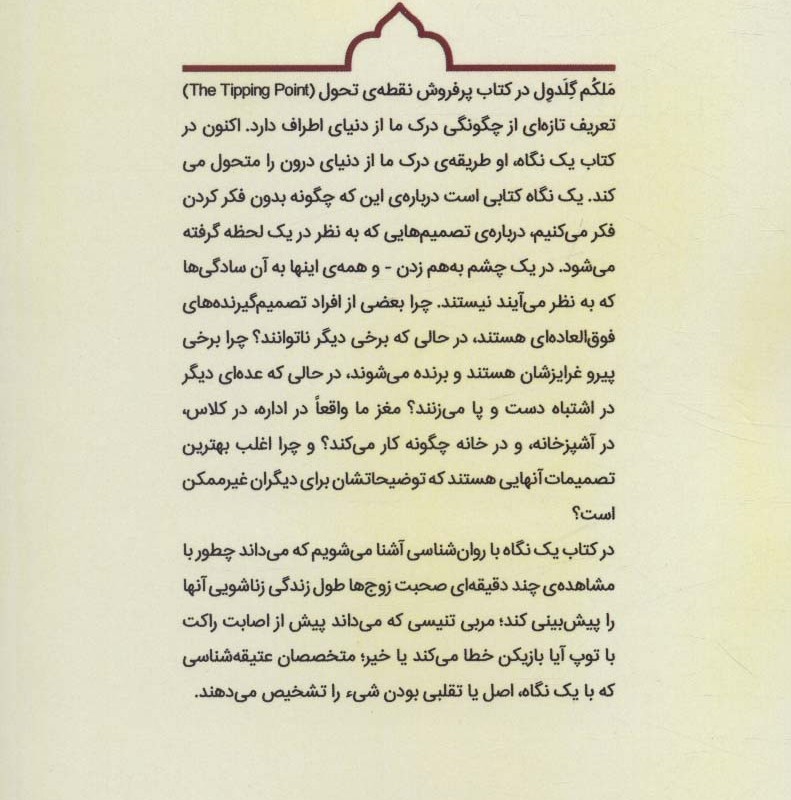 مَلکُم گِلَدوِل در کتاب پرفروش نقطه‌ی تحول (The Tipping Point)
تعریف تازه‌ای از چگونگی درک ما از دنیای اطراف دارد. اکنون در
کتاب یک نگاه، او طریقه‌ی درک ما از دنیای درون را متحول می
کند. یک نگاه کتابی است درباره‌ی این که چگونه بدون فکر کردن
فکر می‌کنیم، درباره‌ی تصمیم‌هایی که به نظر در یک لحظه گرفته
می‌شود. در یک چشم به‌هم زدن - و همه‌ی اینها به آن سادگی‌ها
که به نظر می‌آیند نیستند. چرا بعضی از افراد تصمیم‌گیرنده‌های
فوق‌العاده‌ای هستند، در حالی که برخی دیگر ناتوانند؟ چرا برخی
پیرو غرایزشان هستند و برنده می‌شوند، در حالی که عده‌ای دیگر
در اشتباه دست و پا می‌زنند؟ مغز ما واقعاً در اداره، در کلاس،
در آشپزخانه، و در خانه چگونه کار می‌کند؟ و چرا اغلب بهترین
تصمیمات آنهایی هستند که توضیحاتشان برای دیگران غیرممکن
است؟
در کتاب یک نگاه با روان‌شناسی آشنا می‌شویم که می‌داند چطور با
مشاهده‌ی چند دقیقه‌ای صحبت زوج‌ها طول زندگی زناشویی آنها
را پیش‌بینی کند؛ مربی تنیسی که می‌داند پیش از اصابت راکت
با توپ آیا بازیکن خطا می‌کند یا خیر؛ متخصصان عتیقه‌شناسی
که با یک نگاه، اصل یا تقلبی بودن شیء را تشخیص می‌دهند.